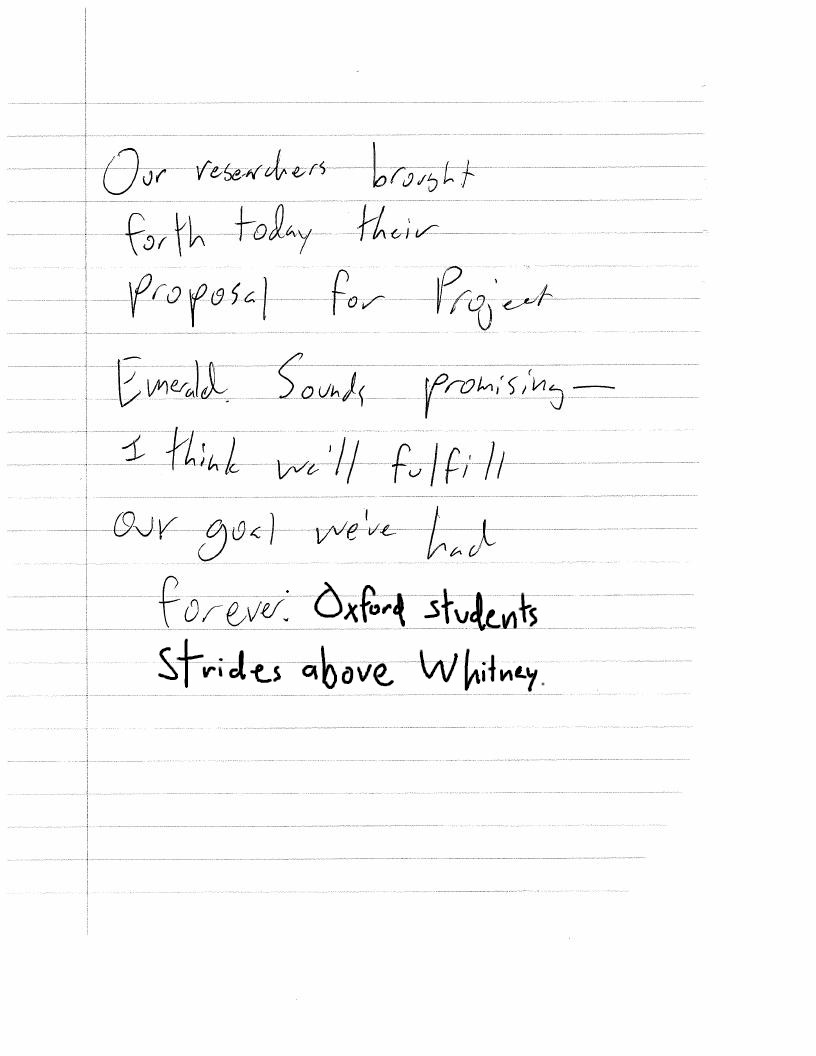 Our researchers brought
forth today their
proposal for Project
Emerald. Sounds promising—
I think we'll fulfill
our goal we've had
forever. Oxford students
Strides above Whitney.